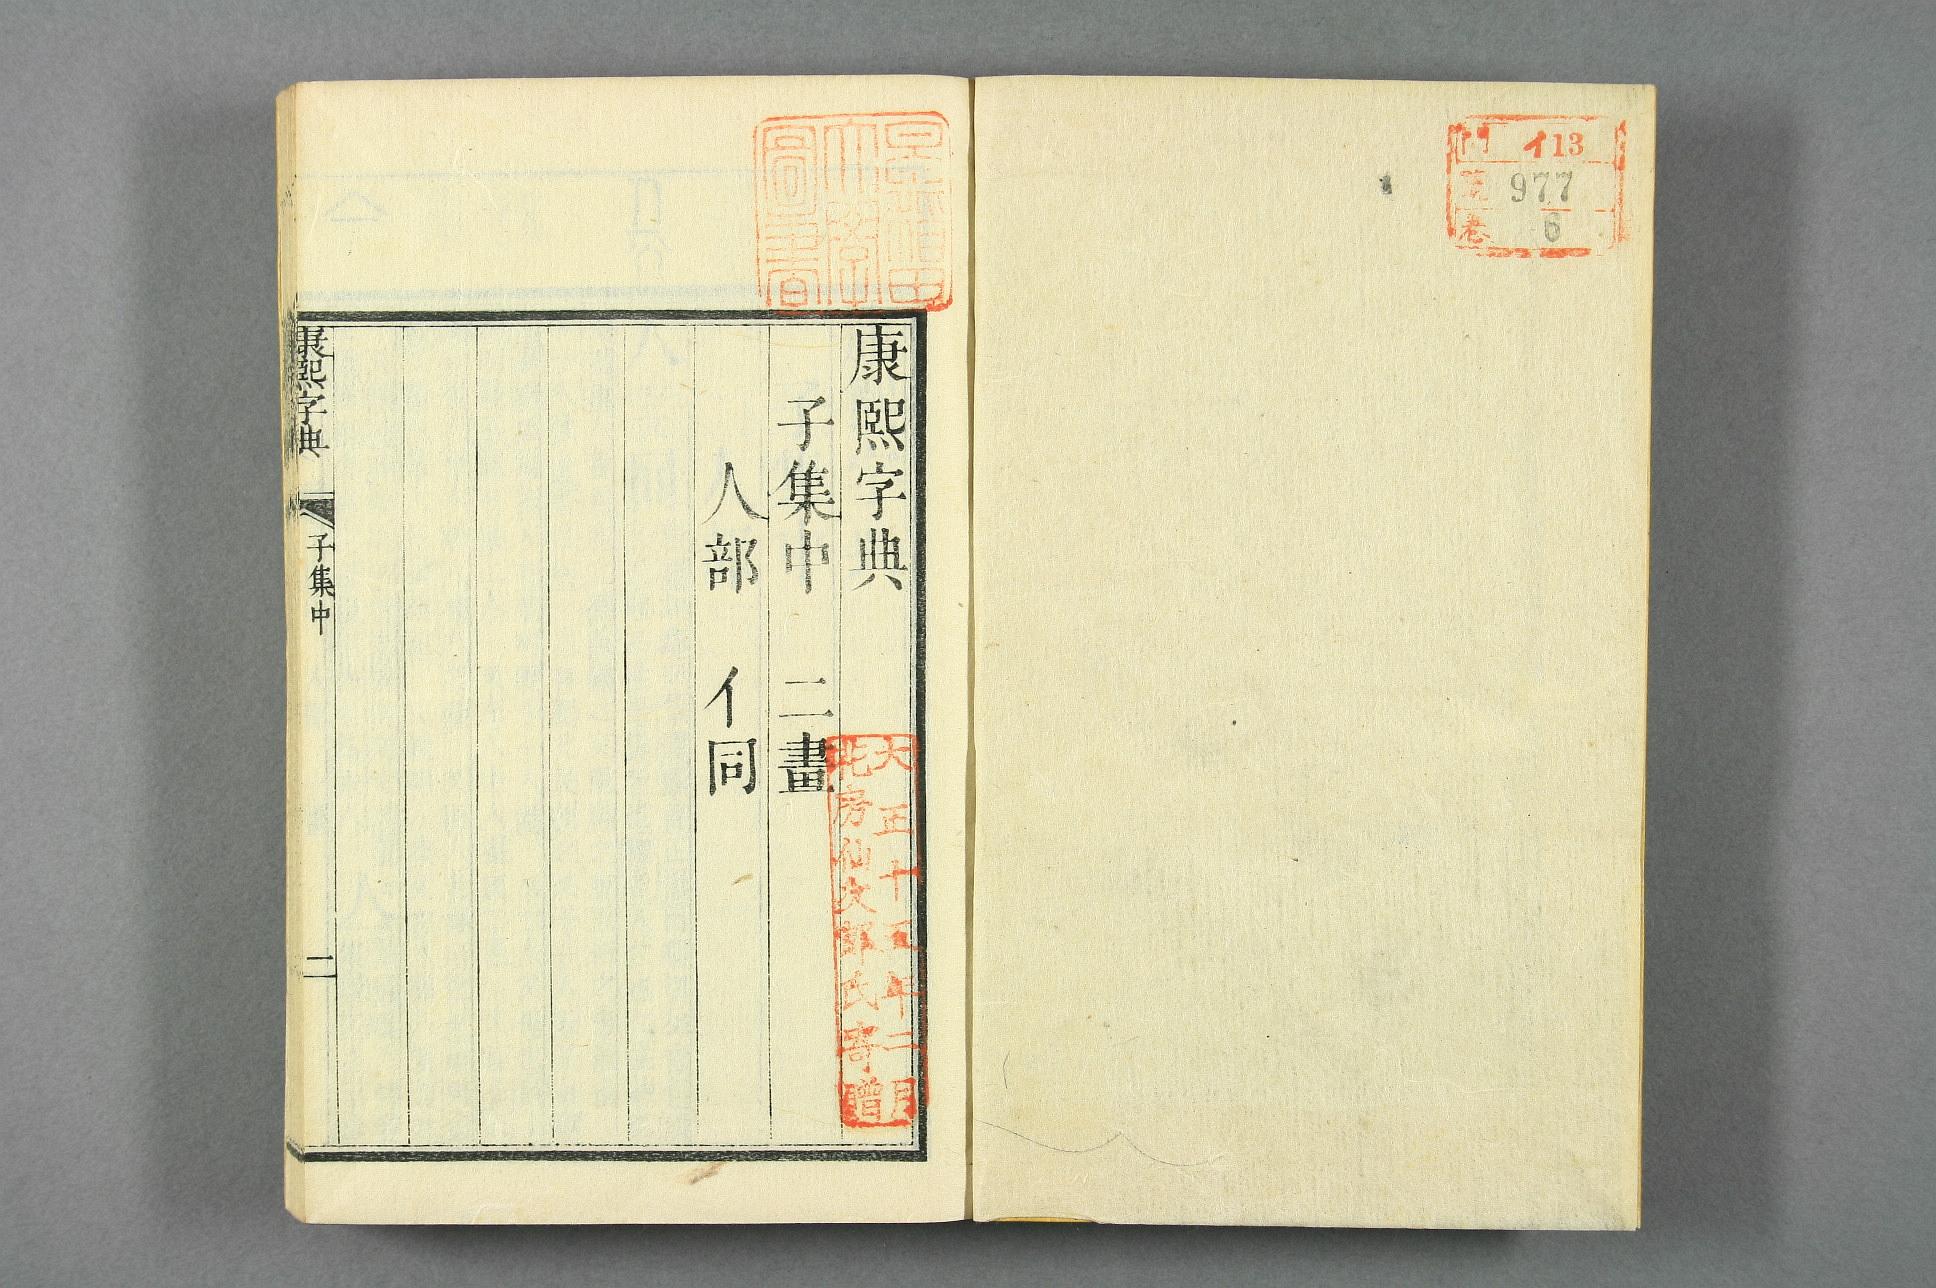 門 イ13
号 977
巻 6
早稲田
大學
圖書
康熙字典
子集中 二畫
人部 亻同
大正十五年二月
北房仙次郎氏寄贈
康熙字典 子集中 二